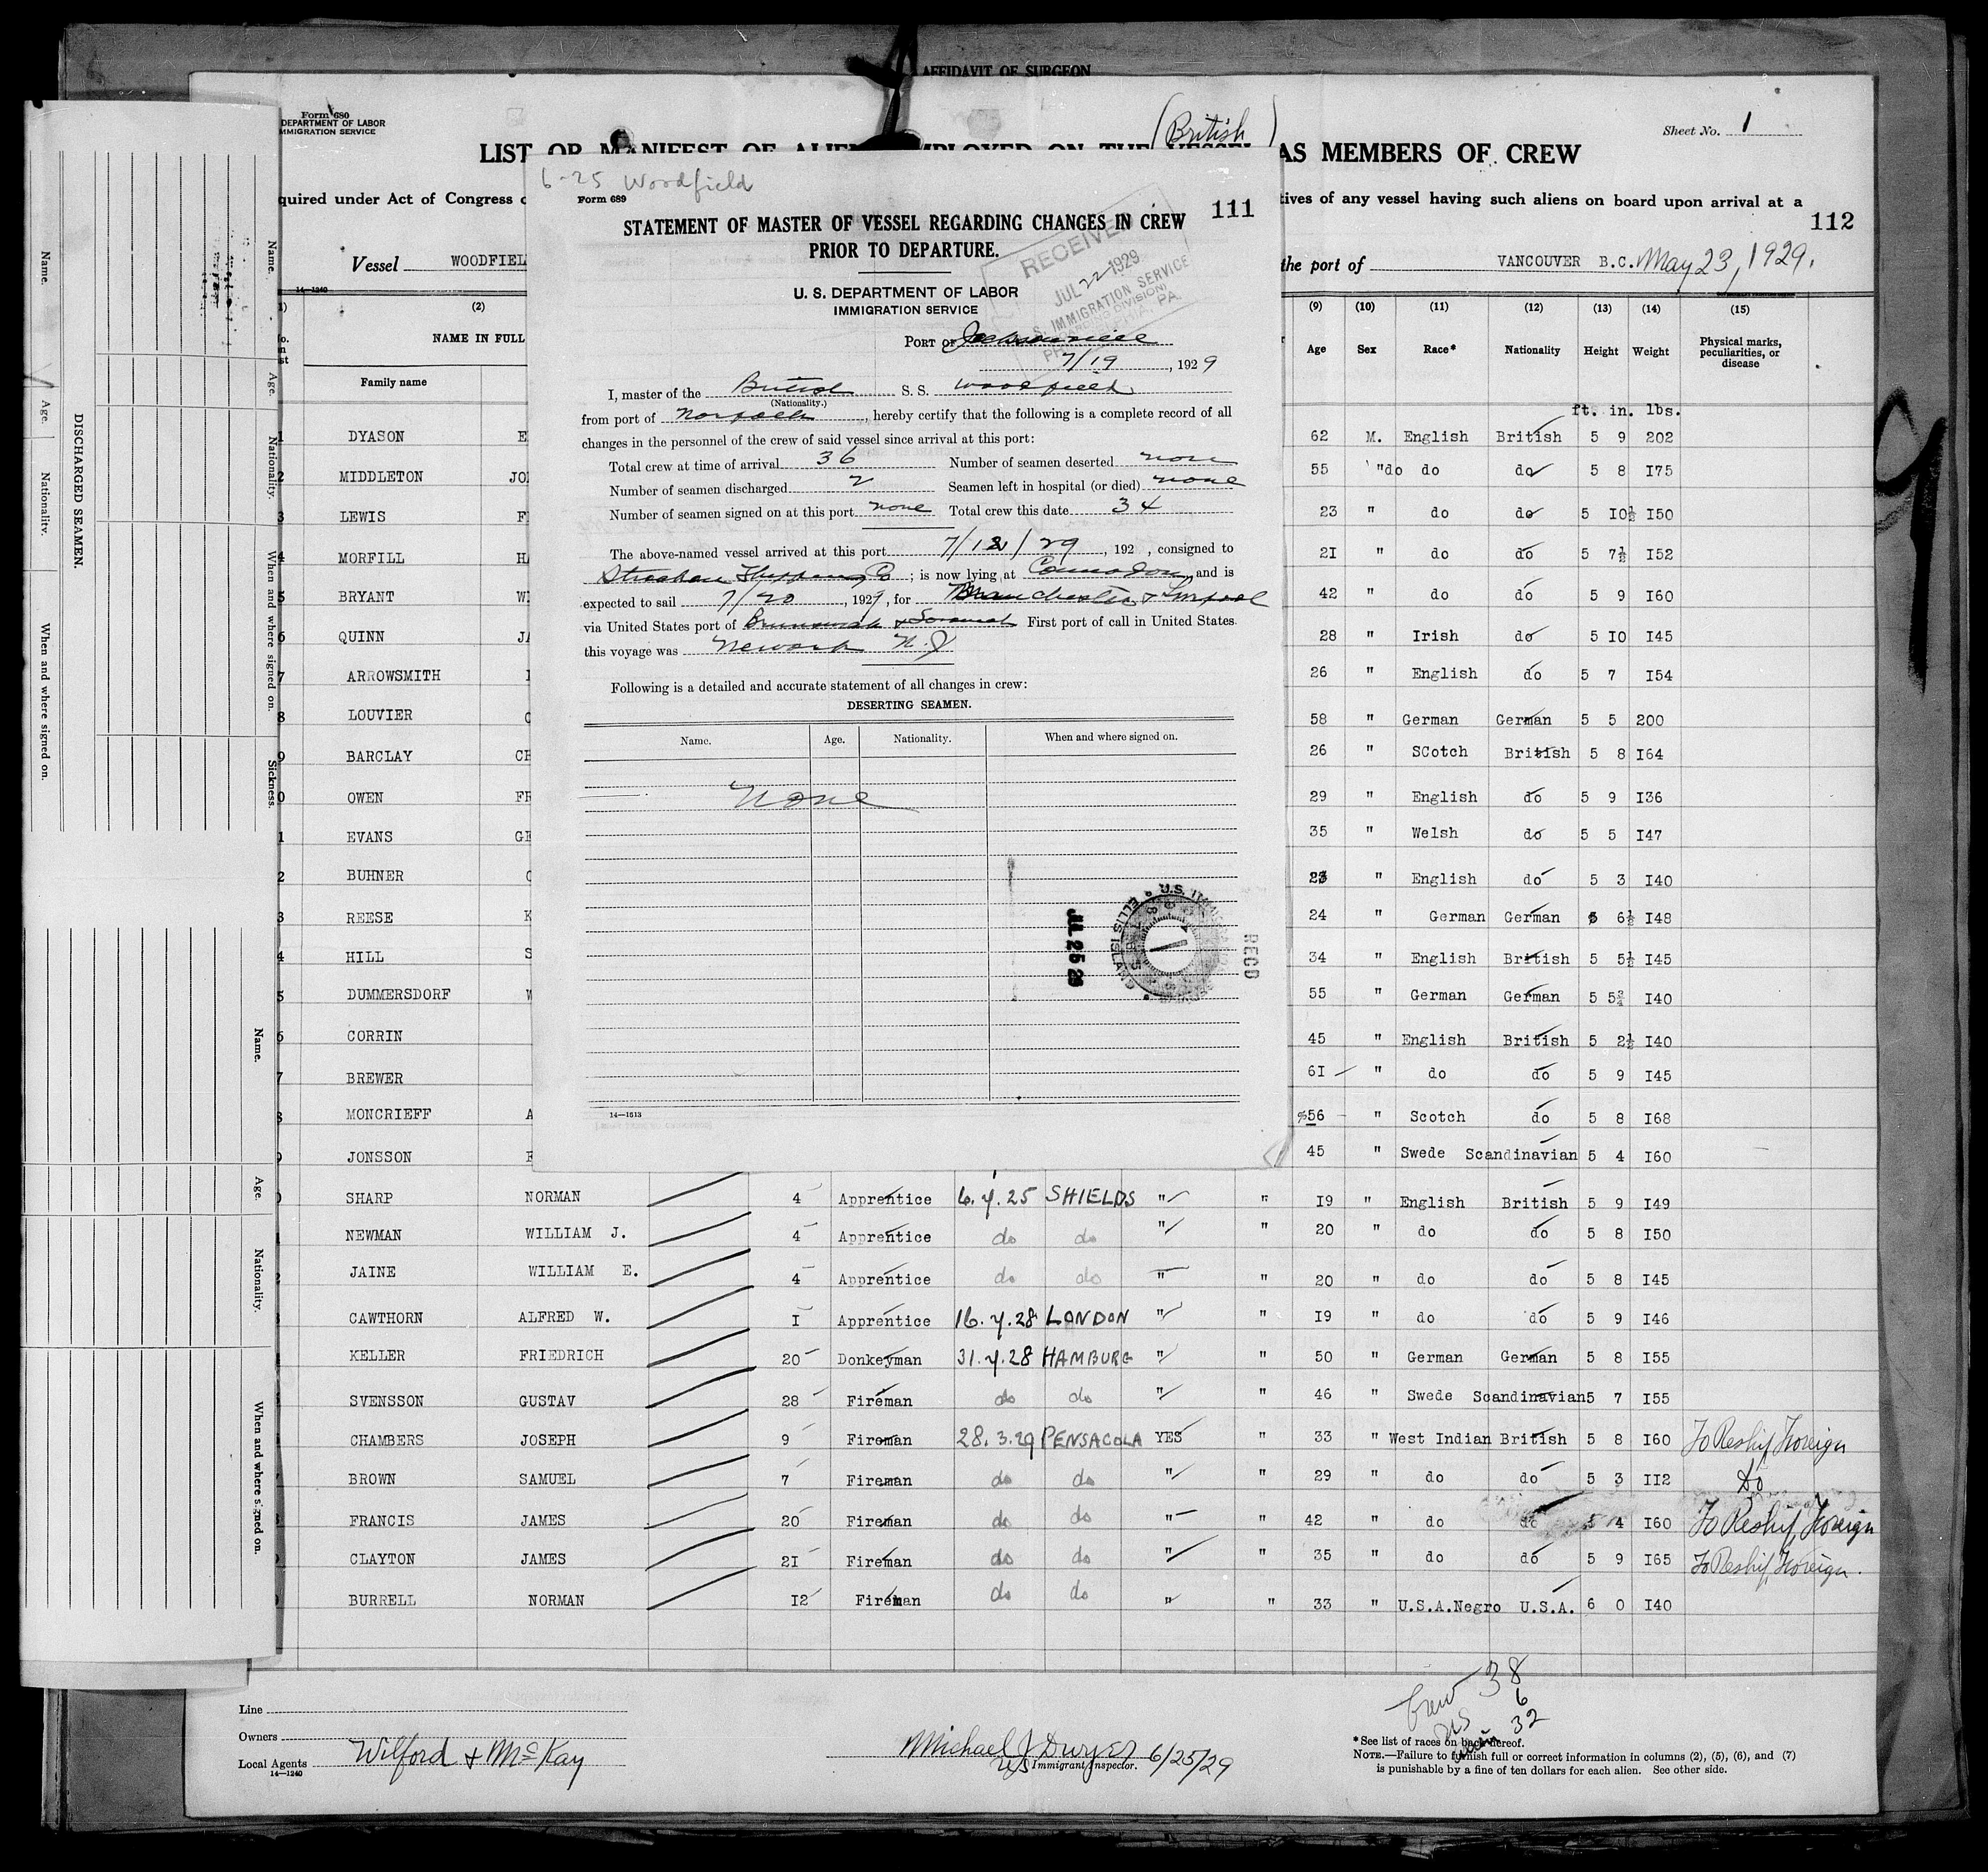 AFFIDAVIT OF SURGEON
Form 680
DEPARTMENT OF LABOR
IMMIGRATION SERVICE
(British)
Sheet No. 1
LIST OR MANIFEST OF ALIENS EMPLOYED ON THE VESSEL AS MEMBERS OF CREW
quired under Act of Congress
tives of any vessel having such aliens on board upon arrival at a
112
Vessel WOODFIEL
the port of VANCOUVER B.C. May 23, 1929.
14—1240
(2) (9) (10) (11) (12) (13) (14) (15)
NAME IN FULL Age Sex Race* Nationality Height Weight Physical marks, peculiarities, or disease
Family name
ft. in. lbs.
1 DYASON E 62 M. English British 5 9 202
2 MIDDLETON JO 55 "do do do 5 8 I75
3 LEWIS F 23 " do do 5 I0½ I50
4 MORFILL HA 2I " do do 5 7½ I52
5 BRYANT W 42 " do do 5 9 I60
6 QUINN JA 28 " Irish do 5 I0 I45
7 ARROWSMITH 26 " English do 5 7 I54
8 LOUVIER 58 " German German 5 5 200
9 BARCLAY CH 26 " SCotch British 5 8 I64
0 OWEN FR 29 " English do 5 9 I36
1 EVANS GE 35 " Welsh do 5 5 I47
2 BUHNER 23 " English do 5 3 I40
3 REESE K 24 " German German 5 6½ I48
4 HILL S 34 " English British 5 5½ I45
5 DUMMERSDORF W 55 " German German 5 5¾ I40
6 CORRIN 45 " English British 5 2½ I40
7 BREWER 6I " do do 5 9 I45
8 MONCRIEFF A 56 " Scotch do 5 8 I68
9 JONSSON 45 " Swede Scandinavian 5 4 I60
0 SHARP NORMAN 4 Apprentice 6.7.25 SHIELDS " " I9 " English British 5 9 I49
NEWMAN WILLIAM J. 4 Apprentice do do " " 20 " do do 5 8 I50
JAINE WILLIAM E. 4 Apprentice do do " " 20 " do do 5 8 I45
CAWTHORN ALFRED W. I Apprentice 16.7.28 LONDON " " I9 " do do 5 9 I46
KELLER FRIEDRICH 20 Donkeyman 31.7.28 HAMBURG " " 50 " German German 5 8 I55
SVENSSON GUSTAV 28 Fireman do do " " 46 " Swede Scandinavian 5 7 I55
CHAMBERS JOSEPH 9 Fireman 28.3.29 PENSACOLA YES " 33 " West Indian British 5 8 I60 To Reship Foreign
BROWN SAMUEL 7 Fireman do do " " 29 " do do 5 3 II2 do
FRANCIS JAMES 20 Fireman do do " " 42 " do do 5 4 I60 To Reship Foreign
CLAYTON JAMES 2I Fireman do do " " 35 " do do 5 9 I65 To Reship Foreign.
BURRELL NORMAN I2 Fireman do do " " 33 " U.S.A.Negro U.S.A. 6 0 I40
Line
Owners
Local Agents Wilford & McKay
14—1240
Michael J Dwyer 6/25/29
US Immigrant Inspector.
Crew 38
US 6
32
*See list of races on back hereof.
NOTE.—Failure to furnish full or correct information in columns (2), (5), (6), and (7)
is punishable by a fine of ten dollars for each alien. See other side.
6-25 Woodfield
Form 689
111
STATEMENT OF MASTER OF VESSEL REGARDING CHANGES IN CREW
PRIOR TO DEPARTURE.
RECEIVED
JUL 22 1929
U.S. IMMIGRATION SERVICE
PA.
U. S. DEPARTMENT OF LABOR
IMMIGRATION SERVICE
PORT OF Jacksonville
7/19, 1929
I, master of the British S. S. Woodfield
(Nationality.)
from port of Norfolk, hereby certify that the following is a complete record of all
changes in the personnel of the crew of said vessel since arrival at this port:
Total crew at time of arrival 36 Number of seamen deserted none
Number of seamen discharged 2 Seamen left in hospital (or died) none
Number of seamen signed on at this port none Total crew this date 34
The above-named vessel arrived at this port 7/18/29, 192 , consigned to
Strachan Shipping Co; is now lying at Commodore, and is
expected to sail 7/20, 1929, for Manchester & Liverpool
via United States port of Brunswick & Savannah First port of call in United States
this voyage was Newark N.J.
Following is a detailed and accurate statement of all changes in crew:
DESERTING SEAMEN.
Name. Age. Nationality. When and where signed on.
none
JUL 25 29
U.S. IMMI
ELLIS ISLA
RECD
14—1513
DISCHARGED SEAMEN.
Name. Age. Nationality. When and where signed on.
Name. Age. Nationality. When and where signed on. Sickness.
Name. Age. Nationality. When and where signed on.